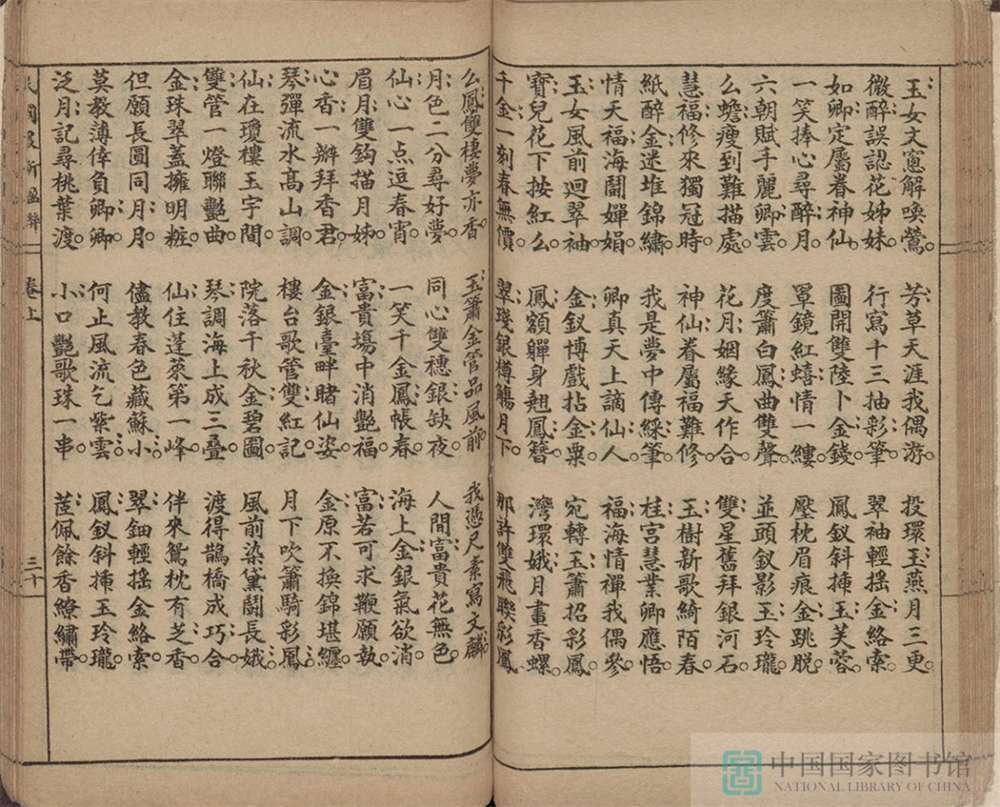 玉女文窻解喚鶯。芳草天涯我偶游。投環玉燕月三更。
微醉誤認花姊妹 行寫十三抽彩筆 翠袖輕搖金絡索
如卿定屬眷神仙 圖開雙陸卜金錢。鳳釵斜揷玉芙蓉。
一笑捧心尋醉月 罩鏡紅蟢情一縷 壓枕眉痕金跳脫
六朝賦手麗卿雲。度簫白鳳曲雙聲。並頭釵影玉玲瓏。
么蟾瘦到難描處 花月姻緣天作合 雙星舊拜銀河石
慧福修來獨冠時。神仙眷屬福難修。玉樹新歌綺陌春。
紙醉金迷堆錦繡 我是夢中傳綵筆 桂宮慧業卿應悟
情天福海鬪嬋娟。卿真天上謫仙人 福海情禪我偶參。
玉女風前迴翠袖 金釵博戲拈金粟 宛轉玉簫招彩鳳
寶兒花下按紅么。鳳額軃身翹鳳簪。灣環娥月畫香螺。
千金一刻春無價 翠琖銀樽觴月下 那許雙飛聯彩鳳
么鳳雙棲夢亦香 玉簫金管品風前 我憑尺素寫文鱗。
月色二分尋好夢 同心雙穗銀缺夜 人間富貴花無色
仙心一点逗春宵。一笑千金鳳帳春。海上金銀氣欲消。
眉月雙鈎描月姊 富貴場中消艷福 富若可求鞭願執
心香一瓣拜香君。金銀臺畔睹仙姿。金原不換錦堪纏。
琴彈流水高山調 樓台歌管雙紅記 月下吹簫騎彩鳳
仙在瓊樓玉宇間。院落千秋金碧圖。風前染黛鬪長娥。
雙管一燈聯艷曲 琴調海上成三疊 渡得鵲橋成巧合
金珠翠蓋擁明粧。仙住蓬萊第一峰。伴來鴛枕有芝香。
但願長圓同月月 儘教春色藏蘇小 翠鈿輕搖金絡索
莫教薄倖負卿卿。何止風流乞紫雲。鳳釵斜揷玉玲瓏。
泛月記尋桃葉渡 小口艷歌珠一串 茝佩餘香繚繡帶
卷上
三十
中国国家图书馆
NATIONAL LIBRARY OF CHINA